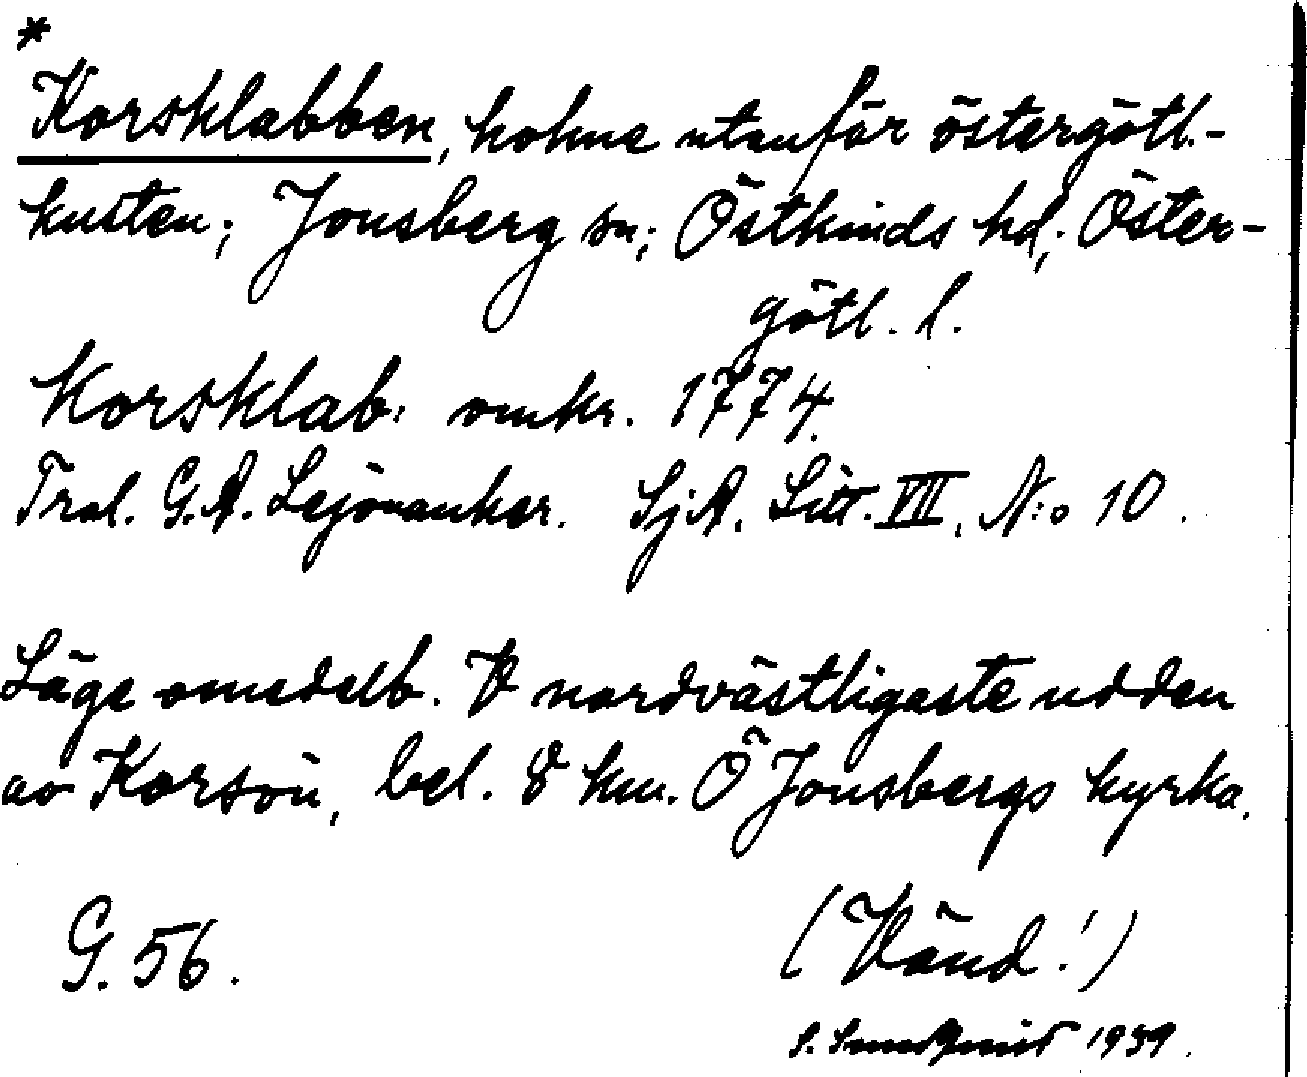 *
Korsklabben, holme utanför östergötl.-
kusten; Jonsberg sn; Östkinds hd; Öster-
götl. l.
Korsklab: omkr. 1774.
Tral. G. A. Lejonanker. SjA. Litt. VII, N:o 10.
Läge omedelb. V nordvästligaste udden
av Korsön, bel. 8 km. Ö Jonsbergs kyrka.
G. 56.
(Vänd!)
S. Sundqvist 1939.